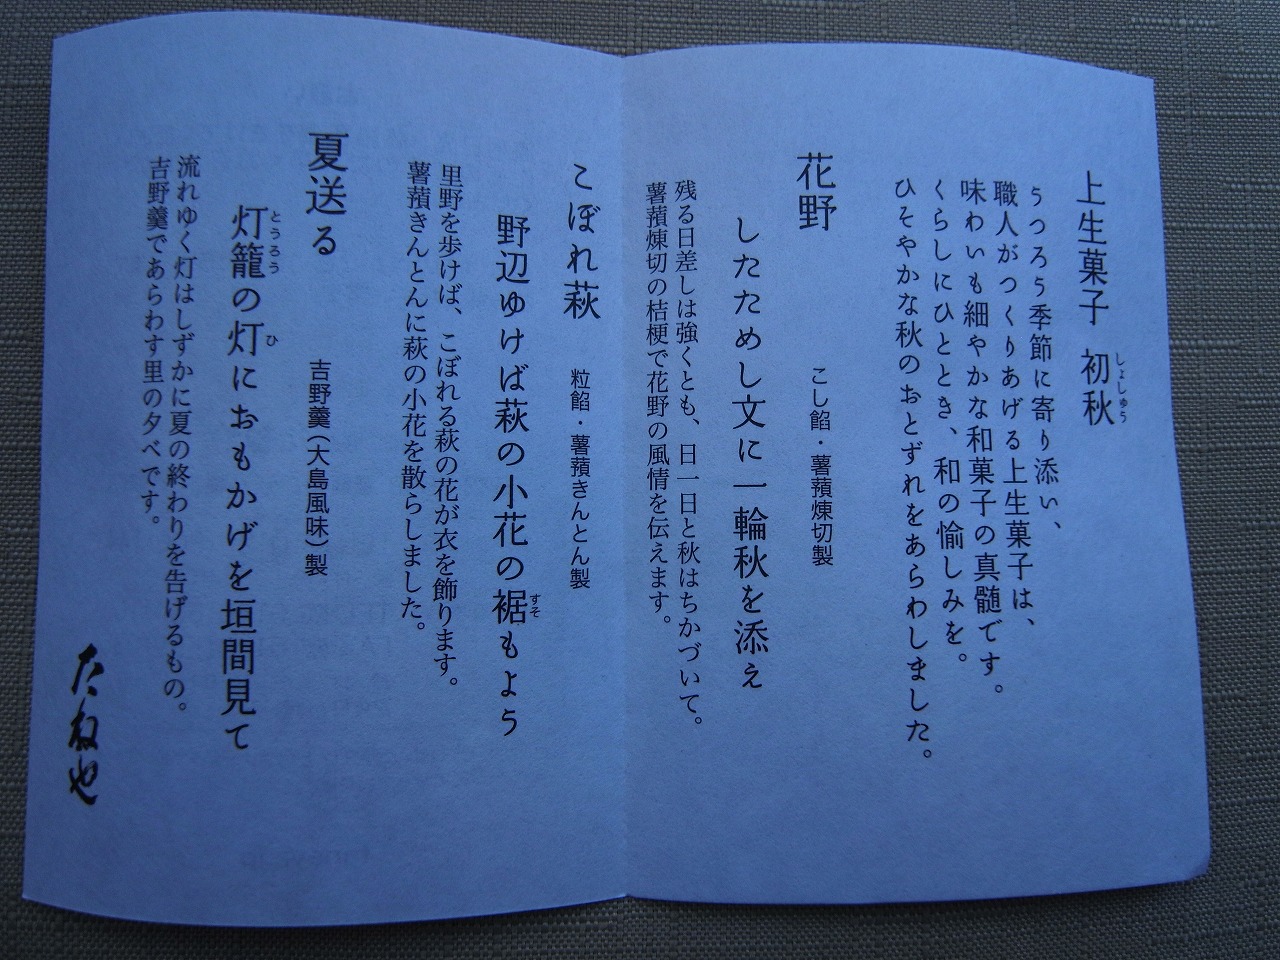 上生菓子 初秋
しょしゅう
うつろう季節に寄り添い、
職人がつくりあげる上生菓子は、
味わいも細やかな和菓子の真髄です。
くらしにひととき、和の愉しみを。
ひそやかな秋のおとずれをあらわしました。
花野
こし餡・薯蕷煉切製
したためし文に一輪秋を添え
残る日差しは強くとも、日一日と秋はちかづいて。
薯蕷煉切の桔梗で花野の風情を伝えます。
こぼれ萩
粒餡・薯蕷きんとん製
野辺ゆけば萩の小花の裾もよう
すそ
里野を歩けば、こぼれる萩の花が衣を飾ります。
薯蕷きんとんに萩の小花を散らしました。
夏送る
吉野羹（大島風味）製
灯籠の灯におもかげを垣間見て
とうろう
ひ
流れゆく灯はしずかに夏の終わりを告げるもの。
吉野羹であらわす里の夕べです。
たねや